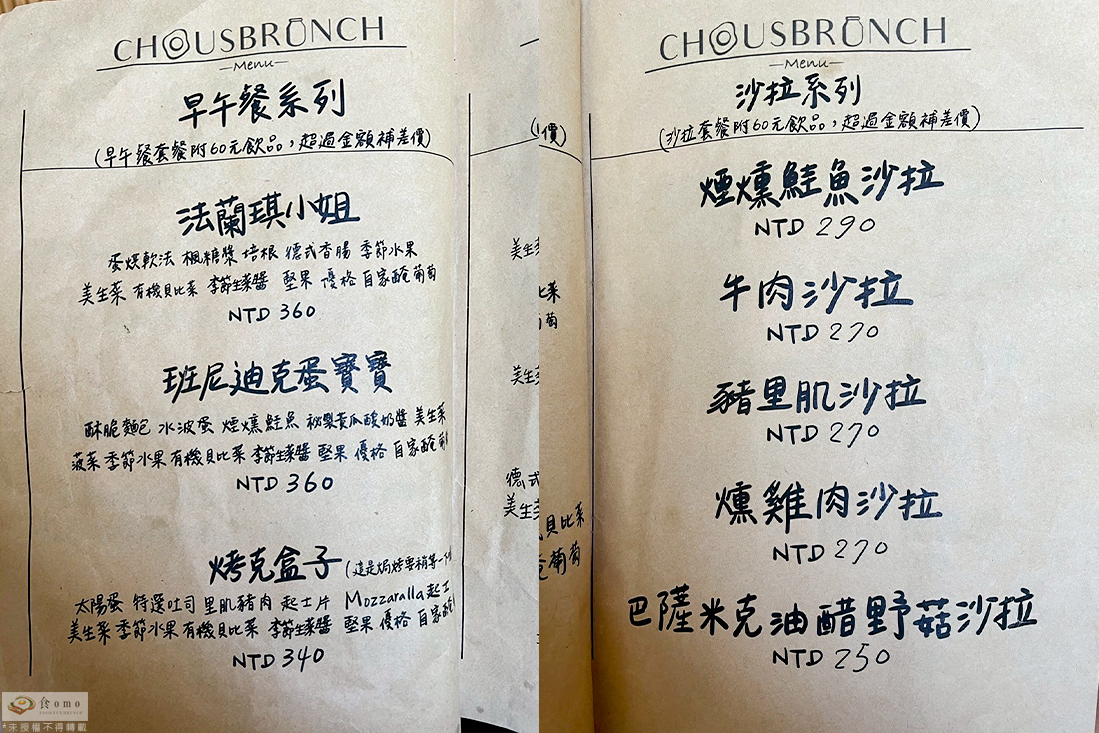 CHOUSBRUNCH
—Menu—
早午餐系列
(早午餐套餐附60元飲品，超過金額補差價)
法蘭琪小姐
蛋煎軟法 楓糖漿 培根 德式香腸 季節水果
美生菜 有機貝比菜 季節生菜醬 堅果 優格 自家醃葡萄
NTD 360
班尼迪克蛋寶寶
酥脆麵包 水波蛋 煙燻鮭魚 祕製黃瓜酸奶醬 美生菜
菠菜 季節水果 有機貝比菜 季節生菜醬 堅果 優格 自家醃葡
NTD 360
烤克盒子 (這是焗烤要稍等一
太陽蛋 特選吐司 里肌豬肉 起士片 Mozzaralla起士
美生菜 季節水果 有機貝比菜 季節生菜醬 堅果 優格 自家醃
NTD 340
價)
美生菜
比菜
葡萄
美生
德式
美生菜
貝比菜
葡萄
CHOUSBRUNCH
—Menu—
沙拉系列
(沙拉套餐附60元飲品，超過金額補差價)
煙燻鮭魚沙拉
NTD 290
牛肉沙拉
NTD 270
豬里肌沙拉
NTD 270
燻雞肉沙拉
NTD 270
巴薩米克油醋野菇沙拉
NTD 250
食omo
*未授權不得轉載